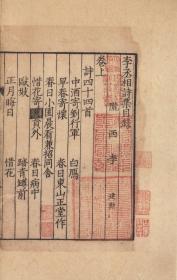 李丞相詩集目錄
卷上
隴西李 建勲
詩四十四首
中酒寄劉行軍 白鴈
早春寄懷 春日東山正堂作
春日小園晨看兼招同舍
惜花寄 員外 春日病中
毆妓 踏青罇前
正月晦日 惜花